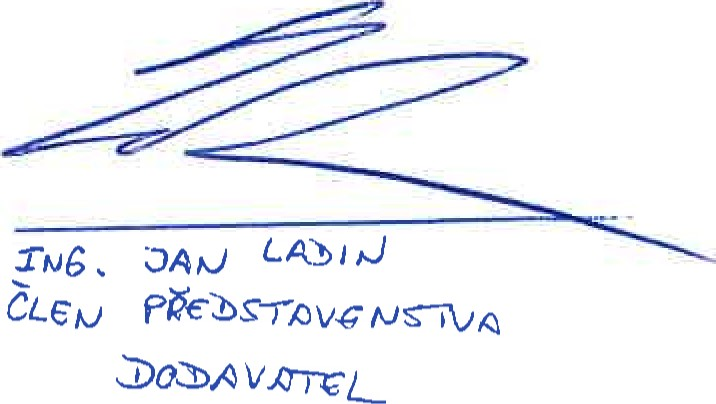 ING. JAN LADIN
ČLEN PŘEDSTAVENSTVA
DODAVATEL